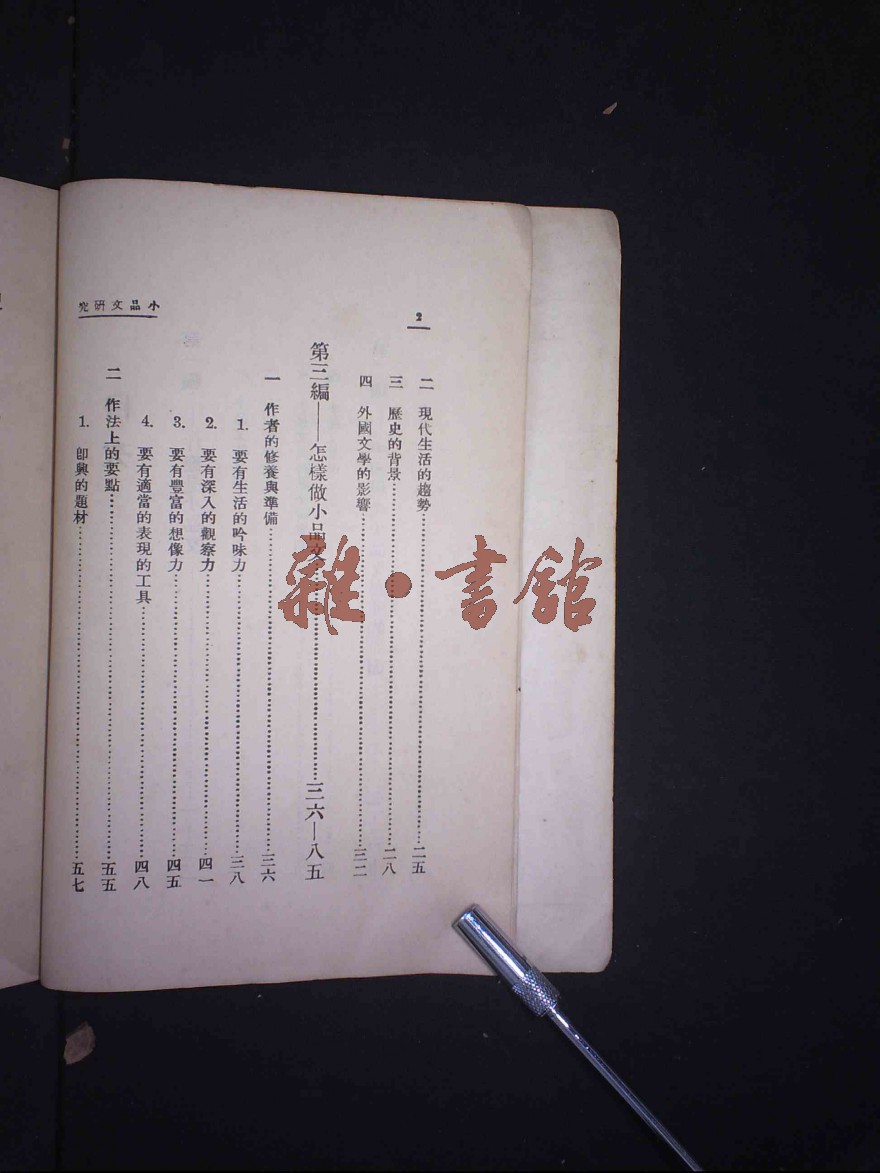 小品文研究
2
二 現代生活的趨勢……二五
三 歷史的背景……二八
四 外國文學的影響……三二
第三編——怎樣做小品文……三六—八五
一 作者的修養與準備……三六
1. 要有生活的吟味力……三八
2. 要有深入的觀察力……四一
3. 要有豐富的想像力……四五
4. 要有適當的表現的工具……四八
二 作法上的要點……五五
1. 卽興的題材……五七
雜·書館